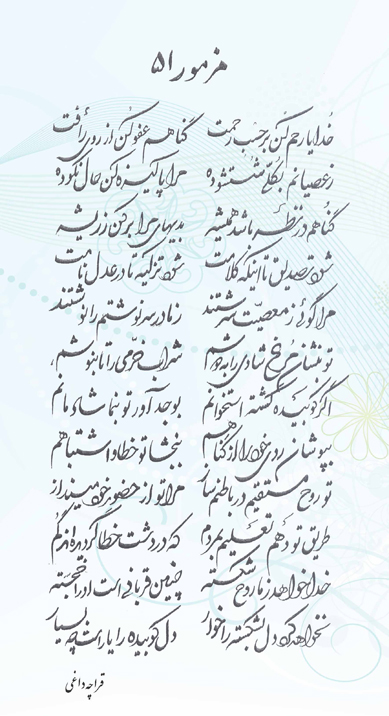 مزمور ۵۱
خدایا رحم کن بر حسب رحمت گناهم عفو کن از روی رأفت
ز عصیانم بکلی شستشو ده مرا پاکیزه کن حال نکو ده
گناهم در نظر باشد همیشه بدیهای مرا برکن ز ریشه
شود تصدیق تا اینکه کلامت شود تزکیه تا در عدل نامت
مرا گوئی ز معصیت سرشتند ز مادر سرنوشتم را نوشتند
تو بنشان مرغ شادی را به دوشم شراب خرمی را تا بنوشم
اگر کوبیده گشته استخوانم بوجد آور تو بنما شادمانم
بپوشان روی خود را از گناهم ببخشا تو خطا و اشتباهم
تو روح مستقیم در باطنم ساز مرا تو از حضور خود مینداز
طریق تو دهم تعلیم مردم که در دشت خطا گردیده اند گم
خدا خواهد ز ما روح شکسته چنین قربانی است او را خجسته
نخواهد کرد دل بشکسته را خوار دل کوبیده را یار است بسیار
قراچه داغی